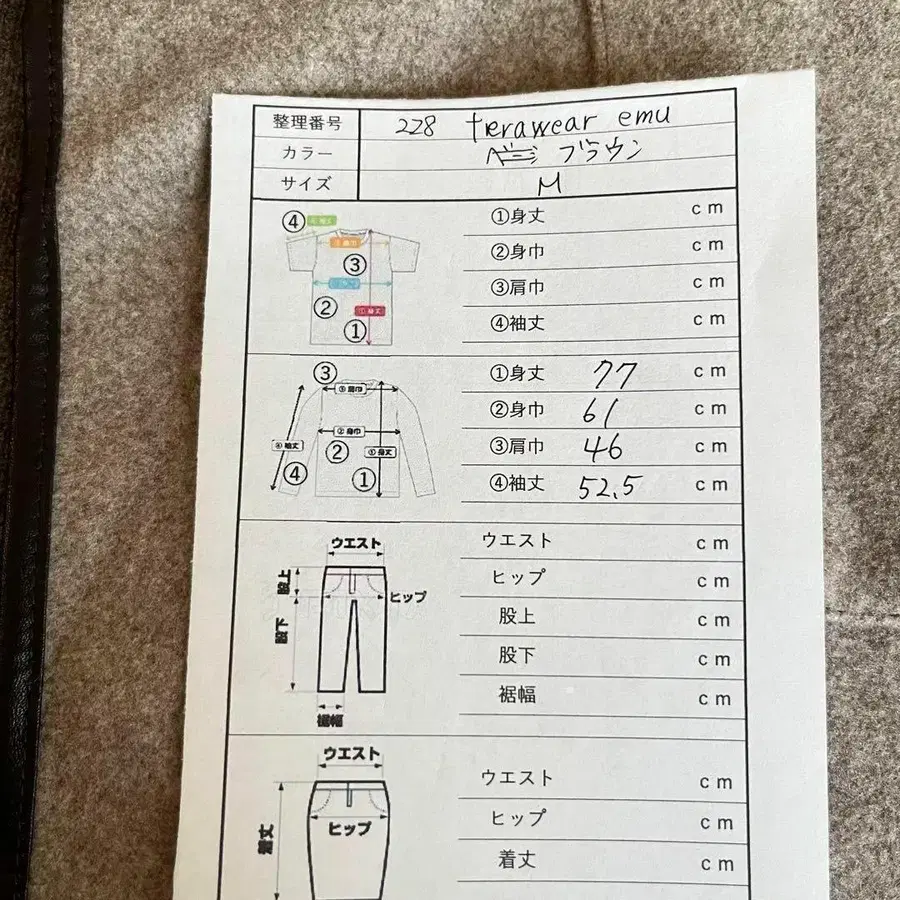 整理番号 228 terawear emu
カラー ブラウン
サイズ M
④ ④袖丈
③
②
①
①身丈 cm
②身巾 cm
③肩巾 cm
④袖丈 cm
③
③肩巾
②身巾
②
④袖丈
④
①身丈
①
①身丈 77 cm
②身巾 61 cm
③肩巾 46 cm
④袖丈 52.5 cm
ウエスト
股上
ヒップ
股下
裾幅
ウエスト cm
ヒップ cm
股上 cm
股下 cm
裾幅 cm
ウエスト
ヒップ
着丈
ウエスト cm
ヒップ cm
着丈 cm